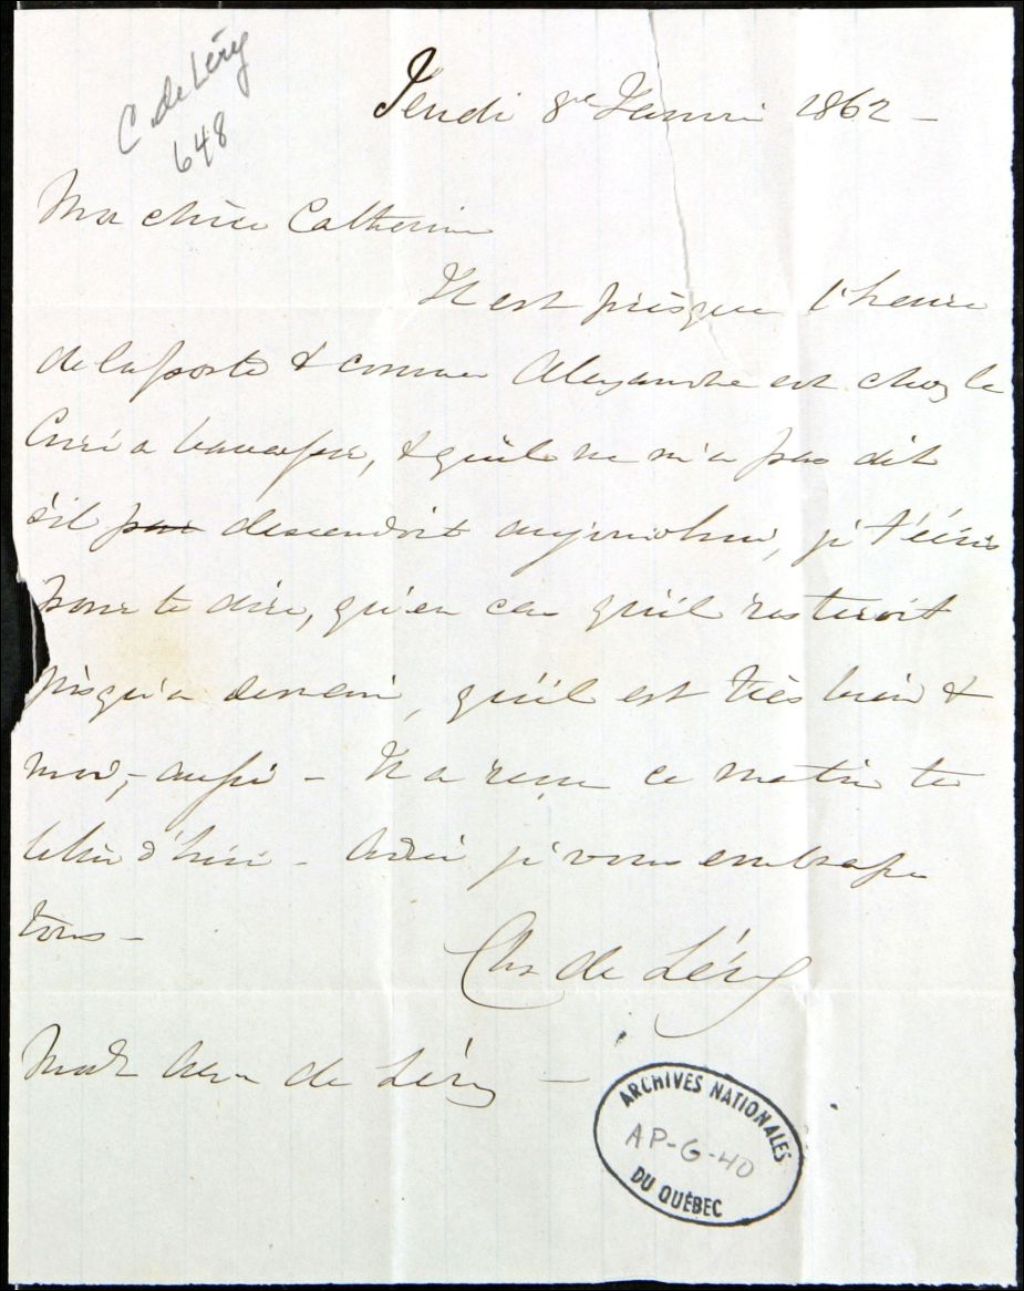 C. de Léry
648
Jeudi 8re Janvier 1862 -
Ma chère Catherine
Il est presque l'heure
de la poste & comme Alexandre est chez le
Curé a, & qu'il ne m'a pas dit
s'il pas descendroit aujourdhui, je t'écris
pour te dire, qu'en cas qu'il resteroit
jusqu'a demain, qu'il est très bien &
moi, - aussi - Il a reçu ce matin ta
lettre d'hier - Adieu je vous embrasse
tous -
Chs de Léry
Made Alexr de Léry -
ARCHIVES NATIONALES
AP-G-40
DU QUÉBEC